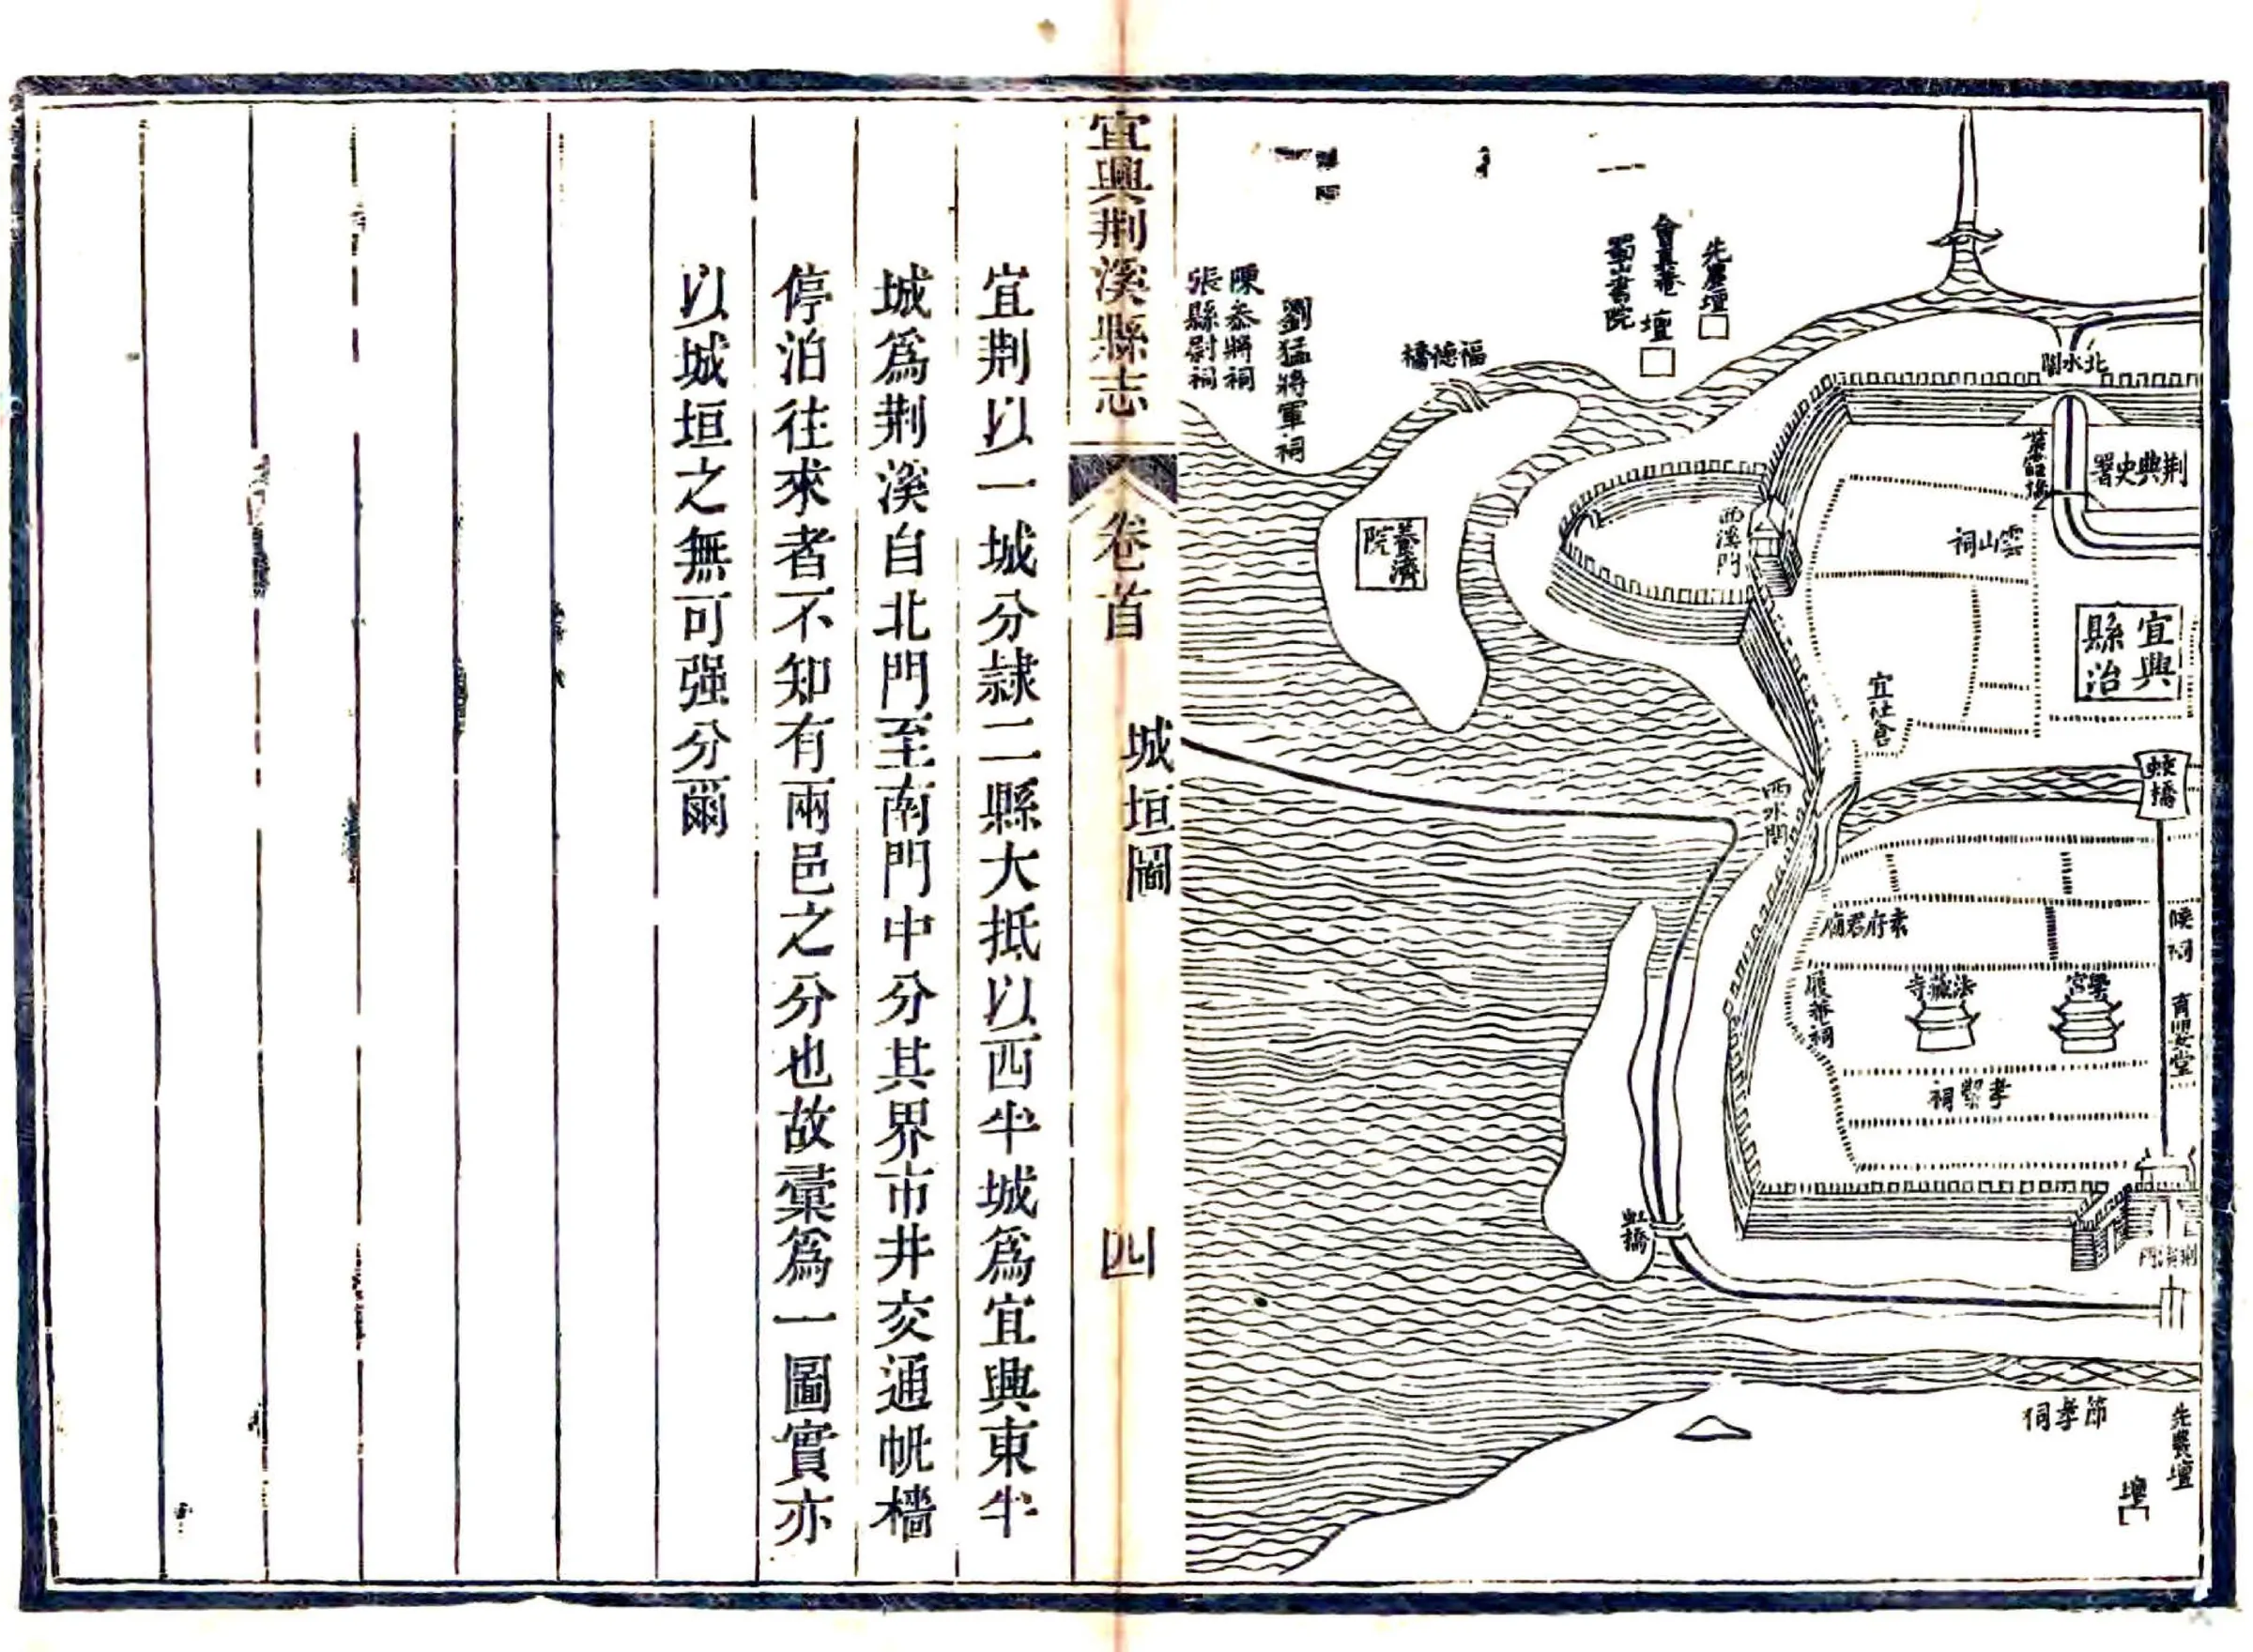 先農壇
壇
節孝祠
荆溪門
虹橋
育嬰堂
孝繋祠
學宮
法藏寺
晟菴祠
袁府君廟
蛟橋
西水關
宜社倉
宜興
縣治
雲山祠
荆典史署
北水關
西溪門
養濟
院
福德橋
壇
會真菴
蜀山書院
劉猛將軍祠
陳叅將祠
張縣尉祠
宜興荆溪縣志
卷首
城垣圖
四
宜荆以一城分隷二縣大抵以西半城爲宜興東半
城爲荆溪自北門至南門中分其界市井交通帆檣
停泊往來者不知有兩邑之分也故彙爲一圖實亦
以城垣之無可强分爾